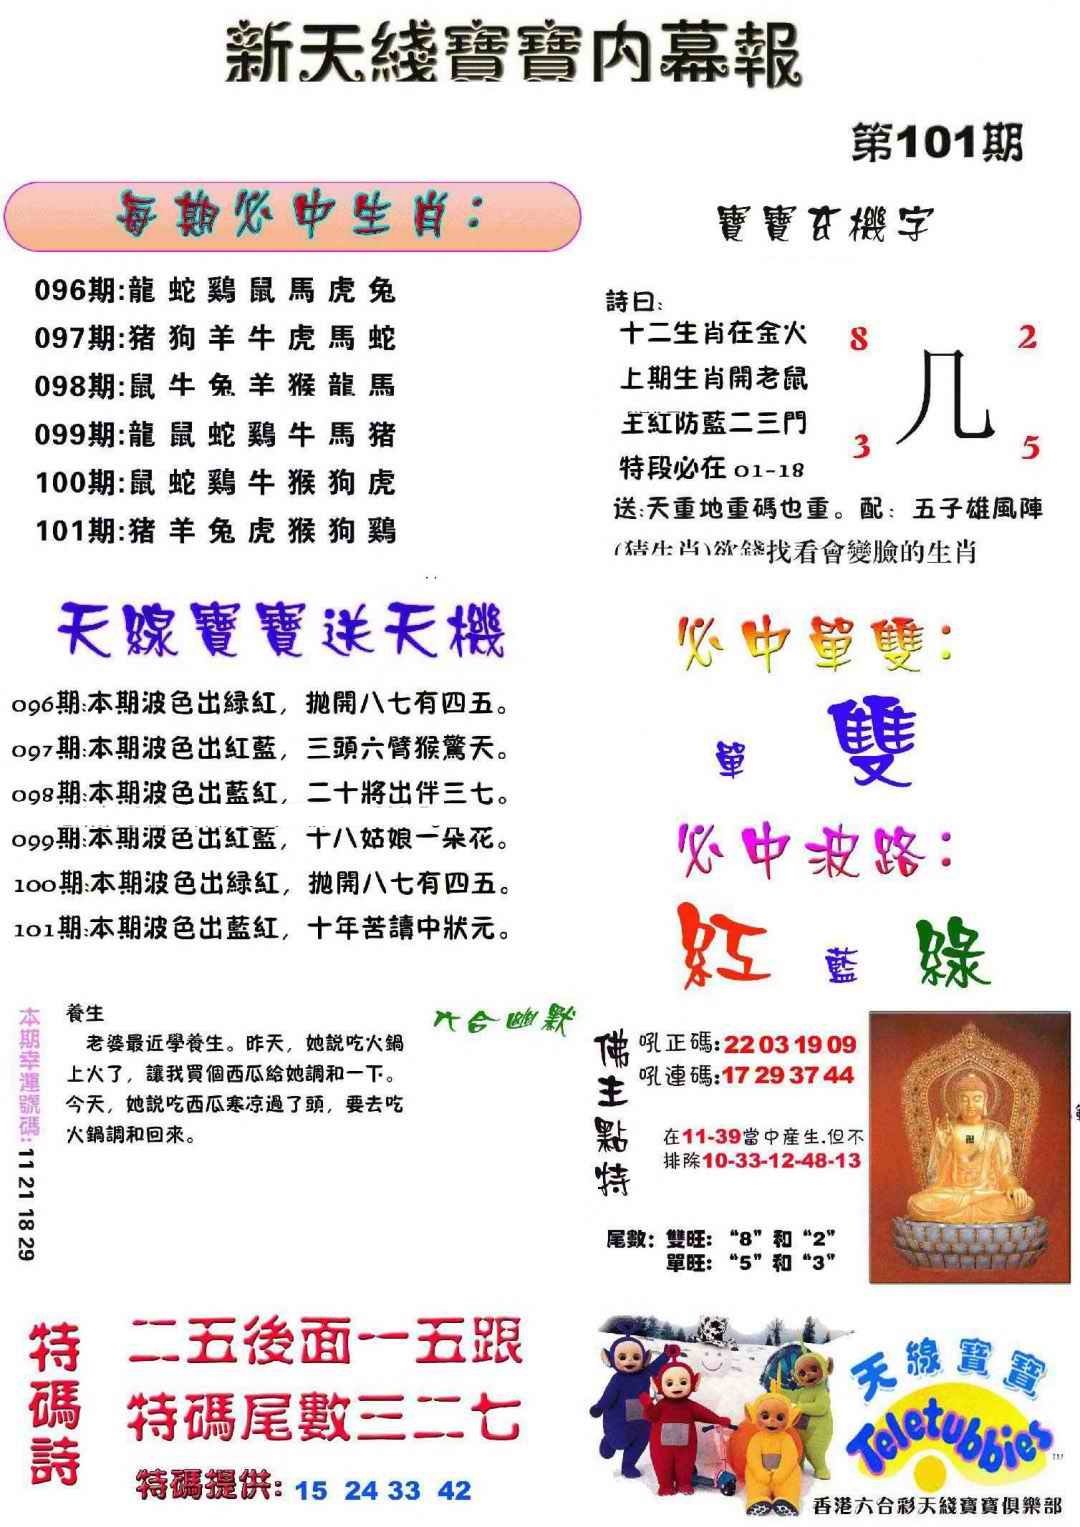 新天綫寶寶内幕報
第101期
每期必中生肖：
096期:龍 蛇 鷄 鼠 馬 虎 兔
097期:猪 狗 羊 牛 虎 馬 蛇
098期:鼠 牛 兔 羊 猴 龍 馬
099期:龍 鼠 蛇 鷄 牛 馬 猪
100期:鼠 蛇 鷄 牛 猴 狗 虎
101期:猪 羊 兔 虎 猴 狗 鷄
寶寶玄機字
詩曰:
十二生肖在金火
上期生肖開老鼠
主紅防藍二三門
特段必在 01-18
8 2
几
3 5
送:天重地重碼也重。配：五子雄風陣
(猜生肖)欲錢找看會變臉的生肖
天線寶寶送天機
096期:本期波色出緑紅，抛開八七有四五。
097期:本期波色出紅藍，三頭六臂猴驚天。
098期:本期波色出藍紅，二十將出伴三七。
099期:本期波色出紅藍，十八姑娘一朵花。
100期:本期波色出緑紅，抛開八七有四五。
101期:本期波色出藍紅，十年苦讀中狀元。
必中單雙：
單 雙
必中波路：
紅 藍 綠
本期幸運號碼:11 21 18 29
六合幽默
養生
老婆最近學養生。昨天，她説吃火鍋
上火了，讓我買個西瓜給她調和一下。
今天，她説吃西瓜寒凉過了頭，要去吃
火鍋調和回來。
佛主點特
吼正碼:22 03 19 09
吼連碼:17 29 37 44
在11-39當中産生.但不
排除10-33-12-48-13
尾數：雙旺：“8”和“2”
單旺：“5”和“3”
特碼詩
二五後面一五跟
特碼尾數三二七
特碼提供: 15 24 33 42
天線寶寶
Teletubbies
TM
香港六合彩天綫寶寶俱樂部